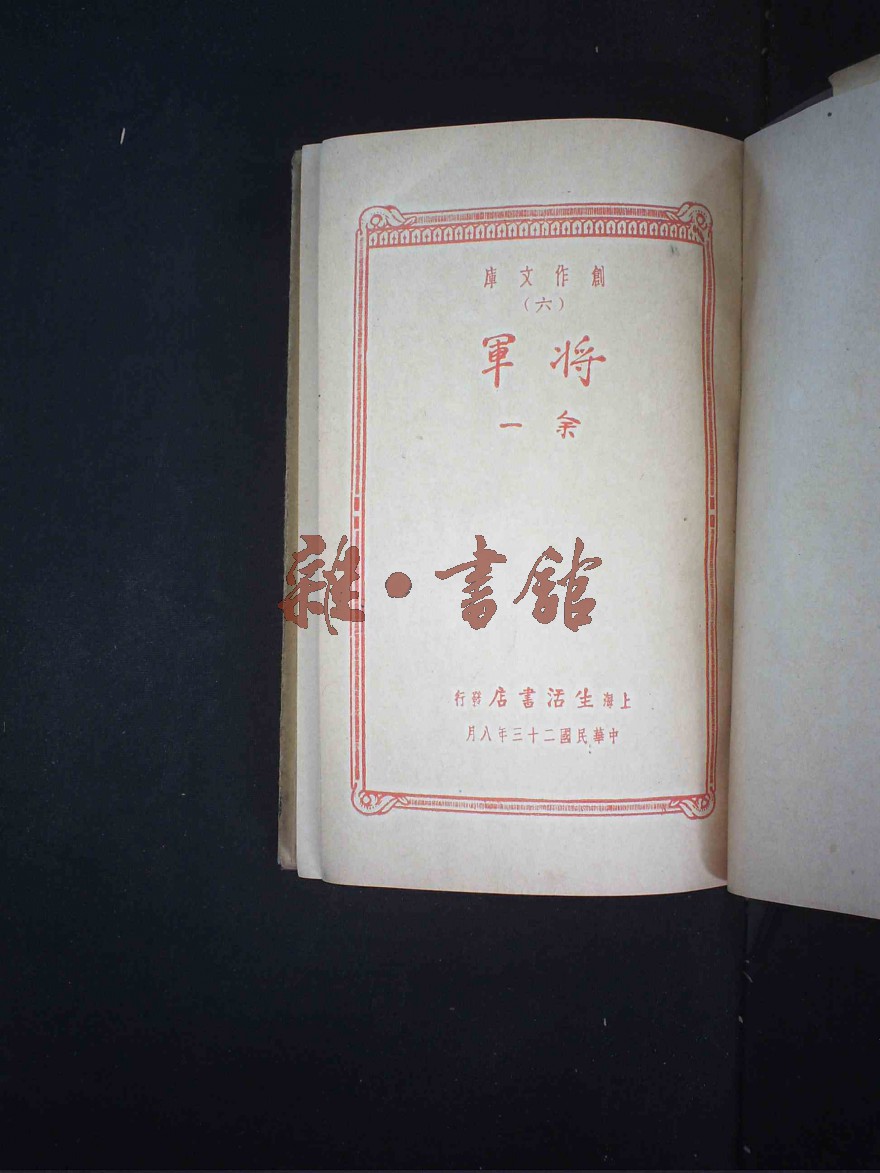 創作文庫
（六）
将軍
余一
雜•書館
上海生活書店發行
中華民國二十三年八月